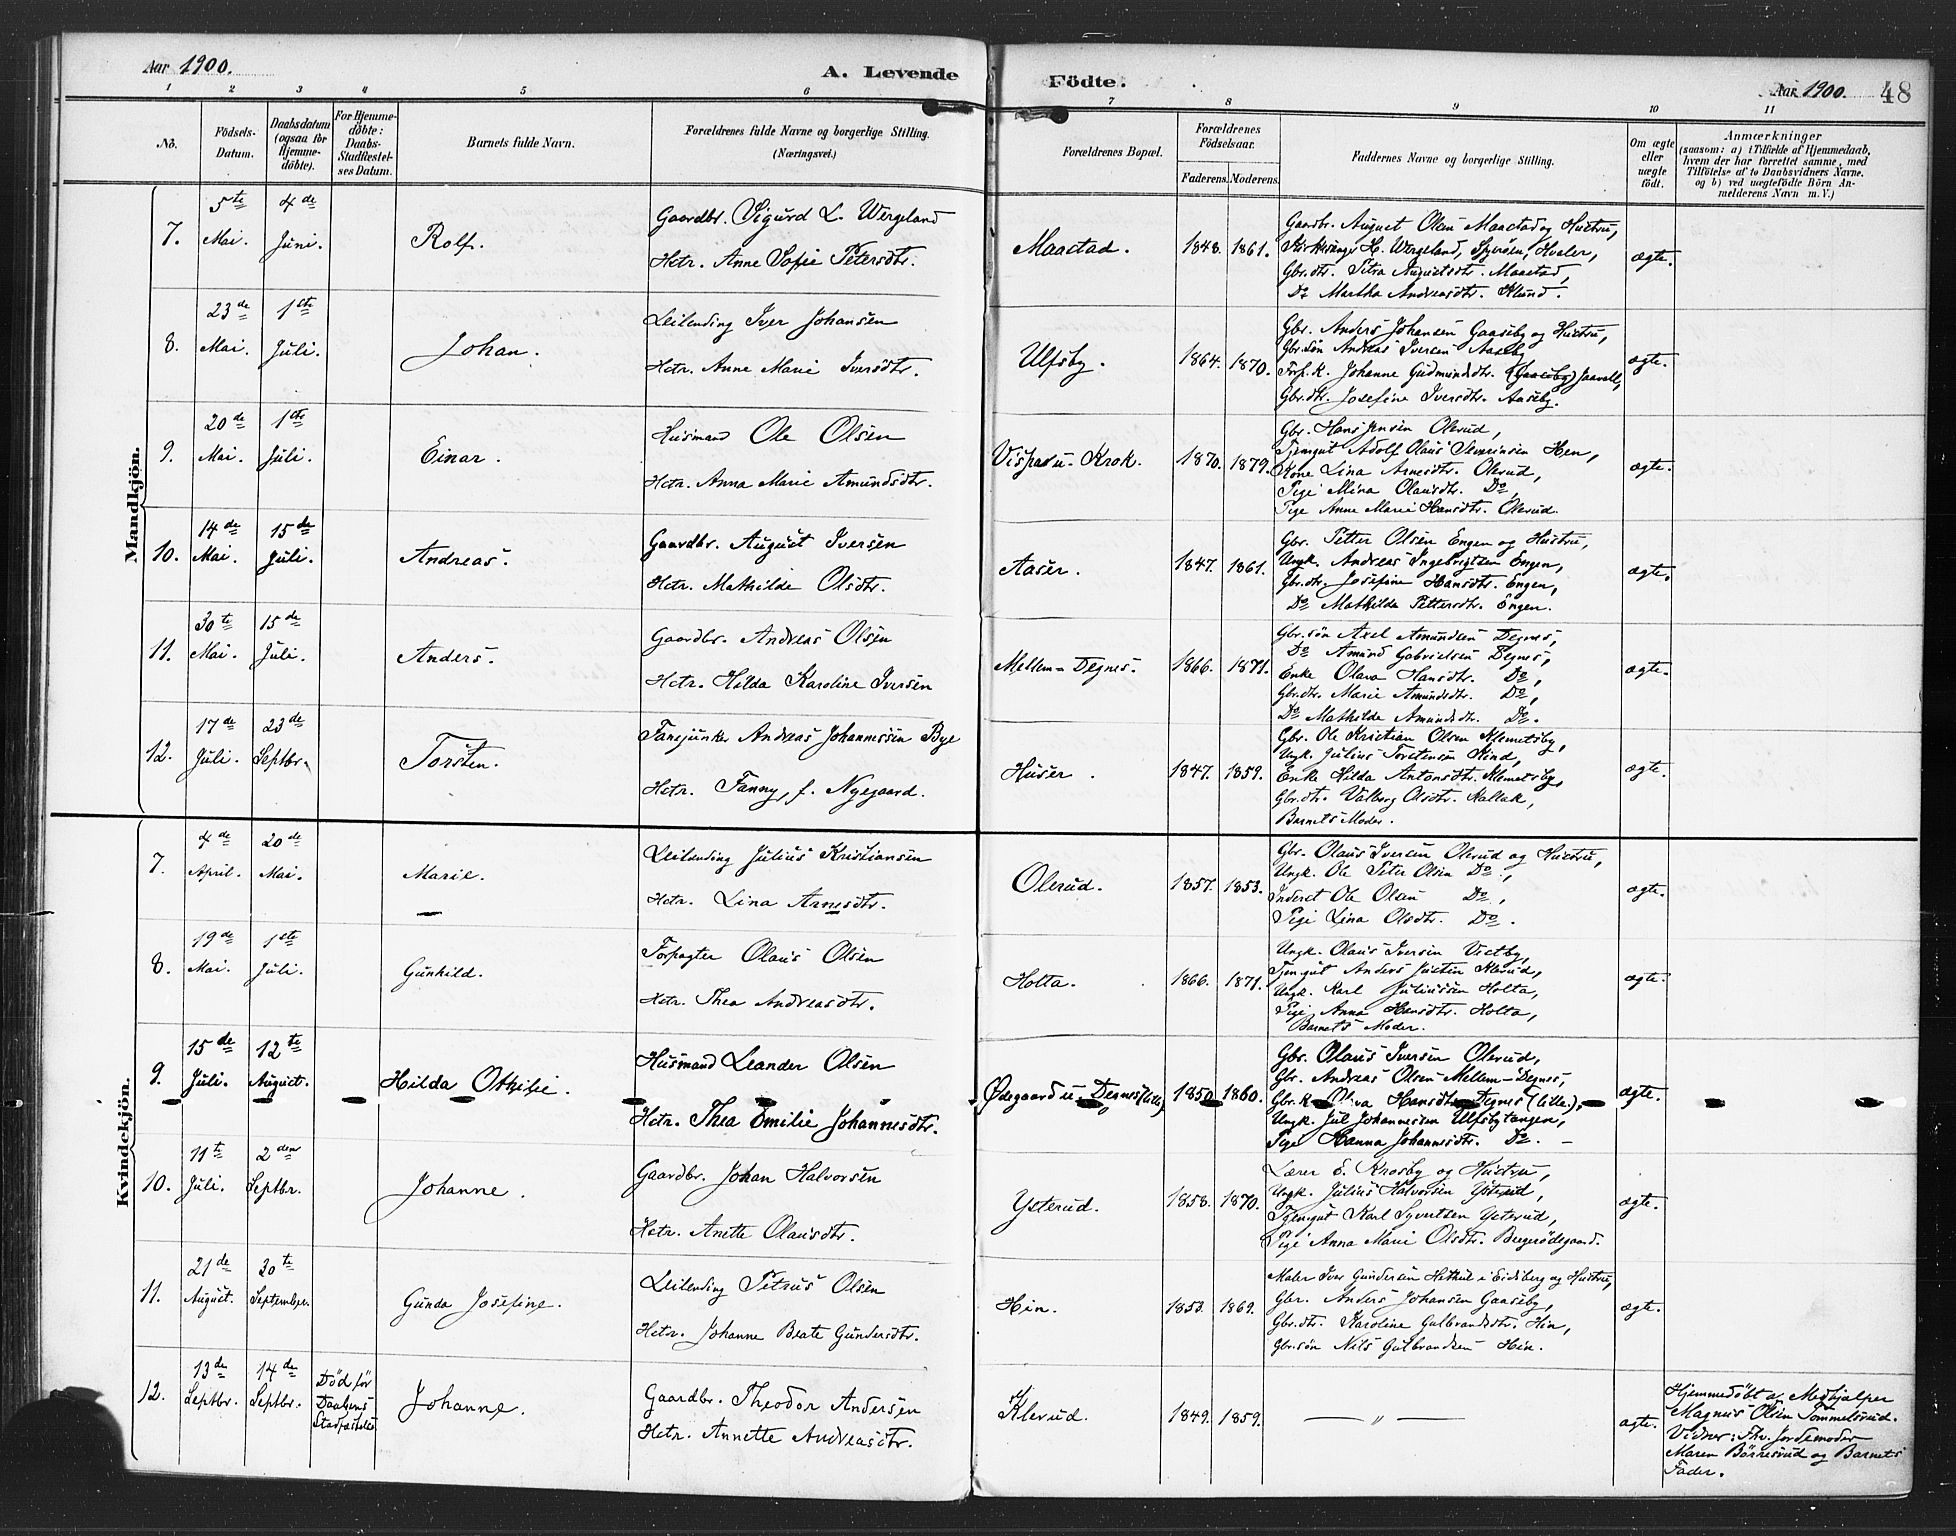 Aar 1900.
A. Levende
Födte.
Aar 1900.
48
1 2 3 4 5 6 7 8 9 10 11
No.
Födsels-
Datum.
Daabsdatum
(ogsaa for
Hjemme-
döbte).
For Hjemme-
döbte:
Daabs-
Stadfæstel-
ses Datum.
Barnets fulde Navn.
Forældrenes fulde Navne og borgerlige Stilling.
(Næringsvei.)
Forældrenes Bopæl.
Forældrenes
Födselsaar.
Faderens. Moderens.
Faddernes Navne og borgerlige Stilling.
Om ægte
eller
uægte
födt.
Anmærkninger
(saasom: a) i Tilfælde af Hjemmedaab,
hvem der har forrettet samme, med
Tilföielse af to Daabsvidners Navne,
og b) ved uægtefödte Börn An-
melderens Navn m. V.)
Mandkjön.
7.
5te
Mai.
4de
Juni.
Rolf.
Gaardbr. Sigurd L. Wergeland
Hstr. Anne Sofie Petersdtr.
Maastad.
1848. 1861.
Gaardbr. August Olsen Maastad og Hustru,
Kirkesanger H. Wergeland, Spjerøen, Hvaler,
Gbr.dtr. Petra Augustsdtr. Maastad,
Do Martha Andreasdtr. Klund.
ægte.
8.
23de
Mai.
1ste
Juli.
Johan.
Leilending Iver Johansen
Hstr. Anne Marie Iversdtr.
Ulfsby.
1864. 1870.
Gbr. Anders Johansen Gaaseby og Hustru,
Gbr.søn Andreas Iversen Aaseby
Forp.k. Johanne Gudmundsdtr. (Gaaseby)
Gbr.dtr. Josefine Iversdtr. Aaseby.
ægte.
9.
20de
Mai.
1ste
Juli.
Einar.
Husmand Ole Olsen
Hstr. Anna Marie Amundsdtr.
Krok.
1870. 1879.
Gbr. Hans Jensen Olerud,
Tjenegut Adolf Olaus Hen,
Kone Lina Arnesdtr. Olerud,
Pige Mina Olausdtr. Do,
Pige Anne Marie Hansdtr. Olerud.
ægte.
10.
14de
Mai.
15de
Juli.
Andreas.
Gaardbr. August Iversen
Hstr. Mathilde Olsdtr.
Aaser.
1847. 1861.
Gbr. Petter Olsen Engen og Hustru,
Ungk. Andreas Ingebrigtsen Engen,
Gbr.dtr. Josefine Hansdtr. Engen,
Do Mathilda Pettersdtr. Engen.
ægte.
11.
30te
Mai.
15de
Juli.
Anders.
Gaardbr. Andreas Olsen
Hstr. Hilda Karoline Iversen
Mellem-Degnes.
1866. 1871.
Gbr.søn Axel Amundsen Degnes,
Do Amund Gabrielsen Degnes,
Enke Olava Hansdtr. Do,
Gbr.dtr. Marie Amundsdtr. Do,
Do Mathilde Amundsdtr. Do.
ægte.
12.
17de
Juli.
23de
Septbr.
Torsten.
Fanejunker Andreas Johannessen Bye
Hstr. Fanny, f. Nygaard.
Huser.
1847. 1859.
Gbr. Ole Kristian Olsen Klemetsby,
Ungk. Julius Torstensen Hind,
Enke Hilda Antonsdtr. Klemetsby,
Gbr.dtr. Valborg Olsdtr. Kallak,
Barnets Moder.
ægte.
Kvindekjön.
7.
4de
April.
20de
Mai.
Marie.
Leilending Julius Kristiansen
Hstr. Lina Arnesdtr.
Olerud.
1857. 1853.
Gbr. Olaus Iversen Olerud og Hustru,
Ungk. Ole Peter Olsen Do,
Inderst Ole Olsen Do,
Pige Lina Olsdtr. Do.
ægte.
8.
19de
Mai.
1ste
Juli.
Gunhild.
Forpagter Olaus Olsen
Hstr. Thea Andreasdtr.
Holta.
1866. 1871.
Ungk. Olaus Iversen Vestby,
Tjenegut Anders Justin Klerud,
Ungk. Karl Juliussen Holta,
Pige Anna Hansdtr. Holta,
Barnets Moder.
ægte.
9.
15de
Juli.
12te
August.
Hilda Othilie.
Husmand Leander Olsen
Hstr. Thea Emilie Johannesdtr.
Ødegaard u. Degnes (lille)
1850 1860.
Gbr. Olaus Iversen Olerud,
Gbr. Andreas Olsen Mellem-Degnes,
Gbr.k. Olava Hansdtr. Degnes (lille),
Ungk. Jul. Johannessen Ulfsbytangen,
Pige Hanna Johannesdtr. Do.
ægte.
10.
11te
Juli.
2den
Septbr.
Johanne.
Gaardbr. Johan Halvorsen
Hstr. Anette Olausdtr.
Ysterud.
1858. 1870.
Lærer E. Krosby og Hustru,
Ungk. Julius Halvorsen Ysterud,
Tjenegut Karl Syvertsen Ysterud,
Pige Anna Marie Olsdtr. Bergerødegaard.
ægte.
11.
21de
August.
30te
September.
Gunda Josefine.
Leilending Petrus Olsen
Hstr. Johanne Beate Gundersdtr.
Hin.
1853. 1869.
Maler Iver Gundersen i Eidsberg og Hustru,
Gbr. Anders Johansen Gaaseby,
Gbr.dtr. Karoline Gulbrandsdtr. Hin,
Gbr.søn Nils Gulbrandsen Hin.
ægte.
12.
13de
Septbr.
14de
Septbr.
Död før
Daabens
Stadfæstelse
Johanne.
Gaardbr. Theodor Andersen
Hstr. Annette Andreasdtr.
Klerud.
1849. 1859.
— „ —
ægte.
Hjemmedöbt af Medhjælper
Magnus Olsen Tommelsrud.
Vidner: Jordemoder
Maren Börresrud og Barnets
Fader.